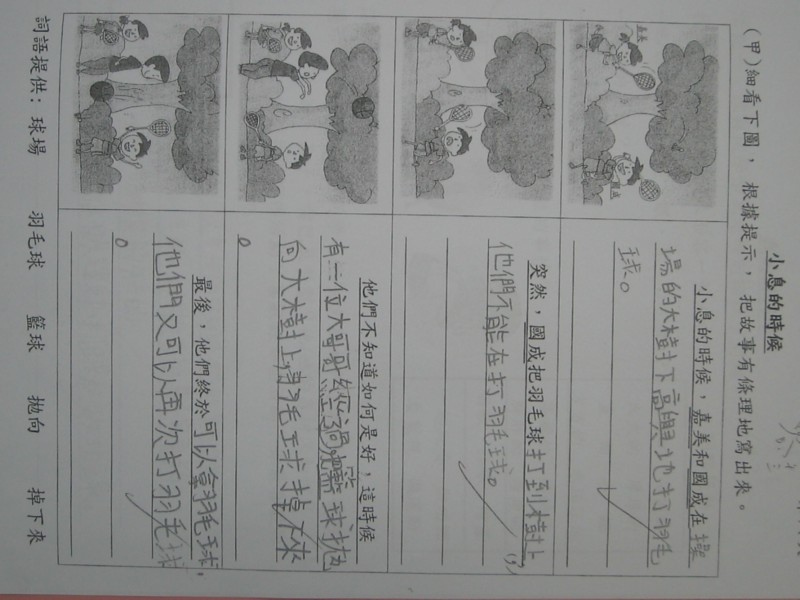 小息的時候
(甲)細看下圖，根據提示，把故事有條理地寫出來。
嘉美
國成
小息的時候，嘉美和國成在操
場的大樹下高興地打羽毛
球。
突然，國成把羽毛球打到樹上
他們不能在打羽毛球。
他們不知道如何是好，這時候
有一位大哥哥經過，籃球拋
向大樹上，羽毛球掉下來
。
最後，他們終於可以拿羽毛球，
他們又可以再次打羽毛球
。
詞語提供：球場 羽毛球 籃球 拋向 掉下來